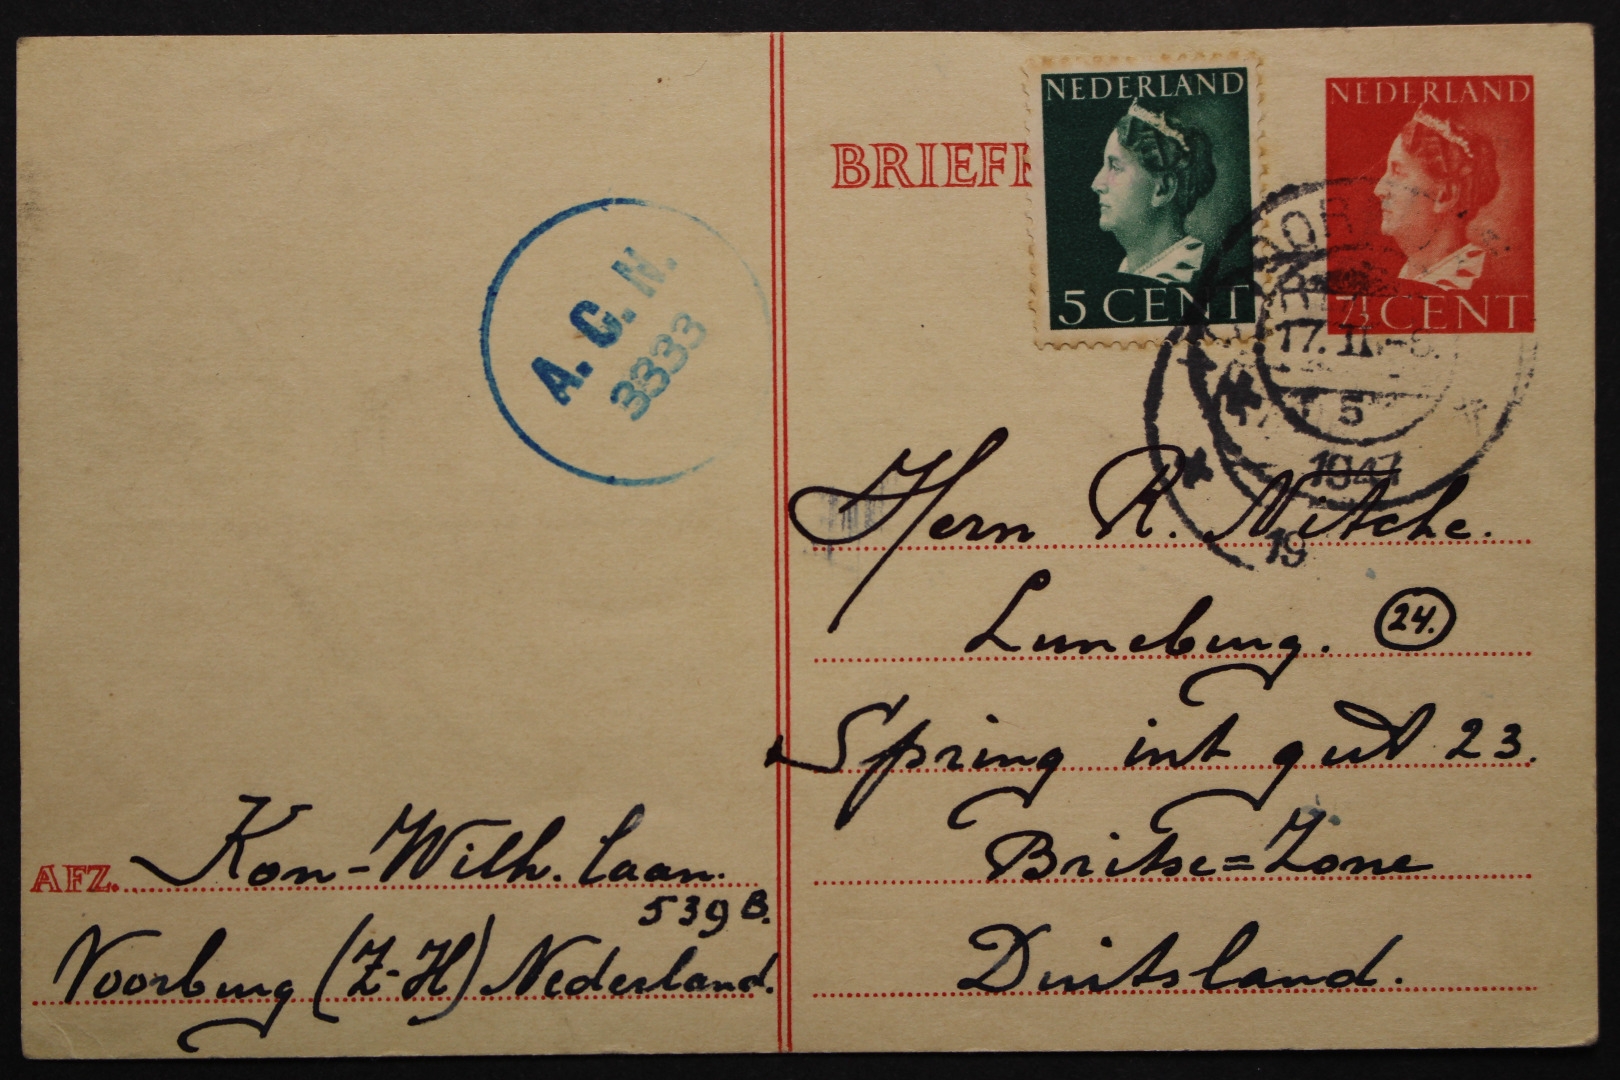 NEDERLAND
5 CENT
NEDERLAND
7½ CENT
BRIEFK
17.II
5
1947
19
A.C.N.
3333
Hern R. Nitche.
Luneburg. 24.
Spring int gut 23.
Britse=Zone
Duitsland.
AFZ. Kon-Wilh. laan.
539 B.
Voorburg (Z-H) Nederland.